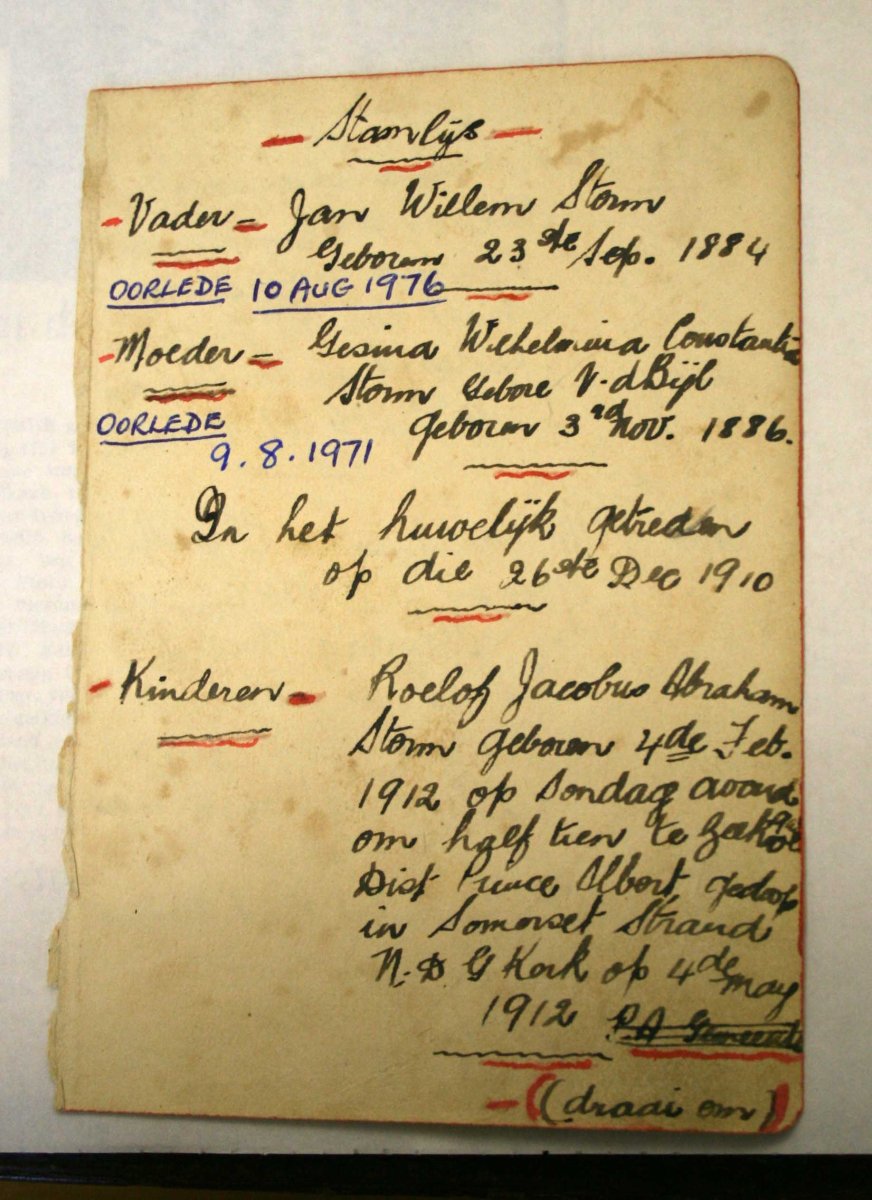 Stamlys
Vader = Jan Willem Storm
Geboren 23ste Sep. 1884
OORLEDE 10 AUG 1976
Moeder = Gesina Wilhelmina Constantia
Storm Gebore V. d Bijl
OORLEDE geboren 3rd Nov. 1886.
9.8.1971
In het huwelijk getreden
op die 26ste Dec 1910
Kinderen = Roelof Jacobus Abraham
Storm geboren 4de Feb.
1912 op Sondag avond
om half tien te
Dist Prince Albert, gedoop
in Somerset Strand
N. D G Kerk op 4de May
1912 P.A Gemeente
(draai om)